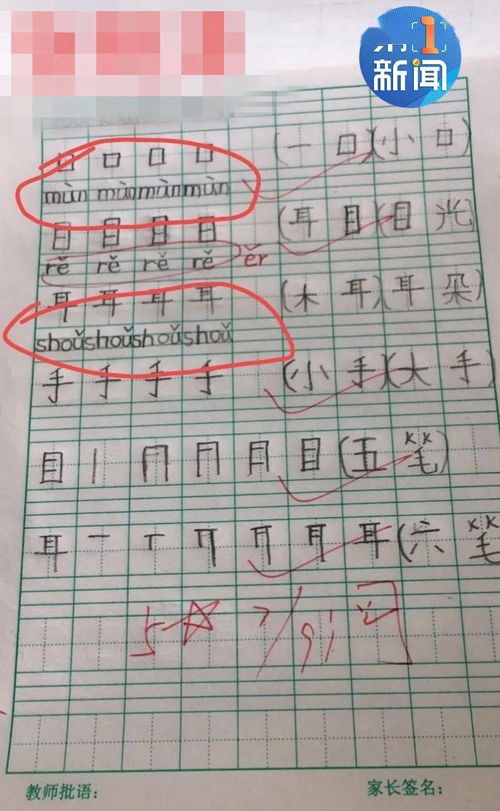 1
新闻
口 口 口 口 (一 口)(小 口)
mùn mùn mùn mùn
目 目 目 目 (耳 目)(目 光)
rě rě rě rě ěr
耳 耳 耳 耳 (木 耳)(耳 朵)
shoǔ shoǔ shoǔ shoǔ
手 手 手 手 (小 手)(大 手)
目 丨 冂 目 (五 笔)
耳 一 丅 耳 (六 笔
5☆ 7/9
教师批语： 家长签名：